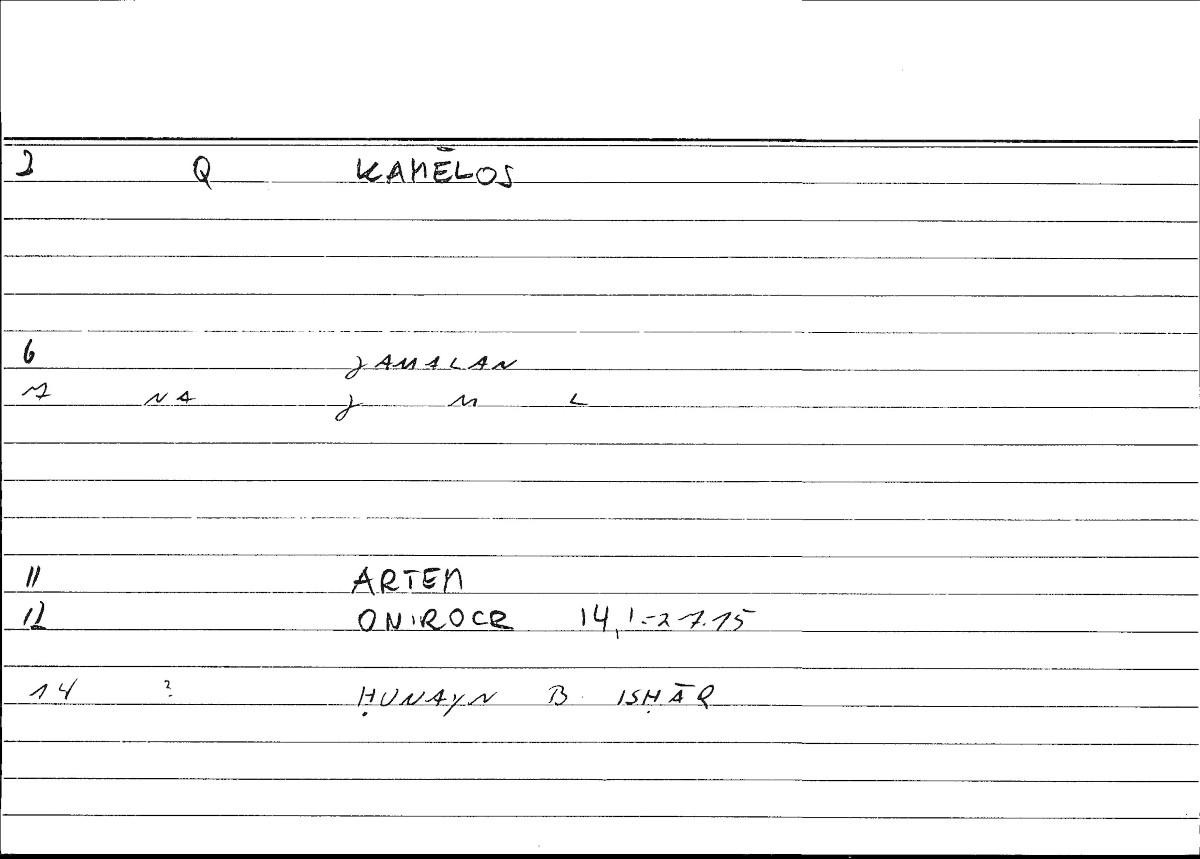 2 Q KAMĒLOS
6 JAMALAN
7 NA J M L
11 ARTEM
12 ONIROCR 14,1-27.15
14 ? ḤUNAYN B. ISḤĀQ